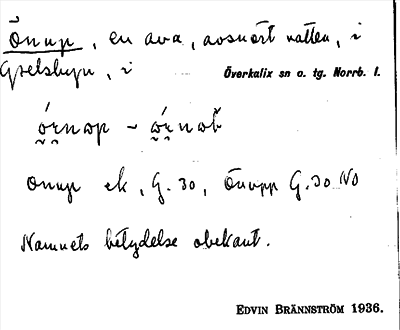 Önup, en ava, avsnört vatten, i
Grelsbyn, i Överkalix sn o. tg. Norrb. l.
onup ek, G. 30, Önupp G. 30 NO
Namnets betydelse obekant.
EDVIN BRÄNNSTRÖM 1936.